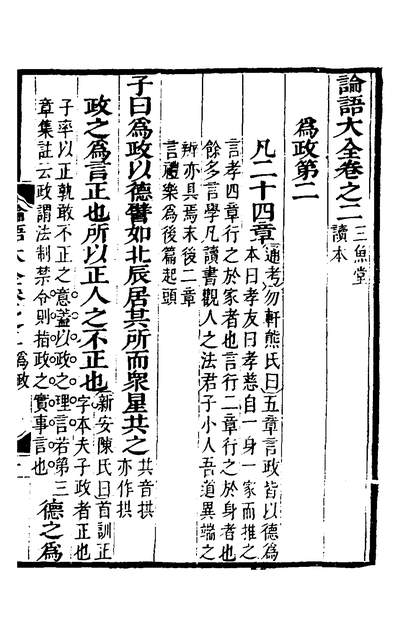 論語大全卷之二 三魚堂讀本
爲政第二
凡二十四章 通考勿軒熊氏曰五章言政皆以德爲
本曰孝友曰孝慈自一身一家而推之
言孝四章行之於家者也言行二章行之於身者也
餘多言學凡讀書觀人之法君子小人吾道異端之
辨亦具焉末後二章
言禮樂爲後篇起頭
子曰爲政以德譬如北辰居其所而衆星共之 共音拱亦作拱
政之爲言正也所以正人之不正也 新安陳氏曰首訓正
字本夫子政者正也
子率以正孰敢不正之意蓋以政之理言若第三
章集註云政謂法制禁令則指政之實事言也 德之爲
論語大全卷之二 爲政 一